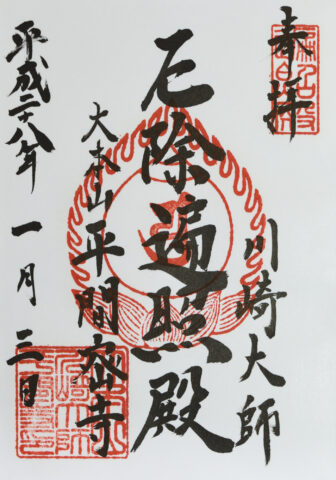 奉拝
川崎大師
厄除遍照殿
大本山平間寺
平成二十八年一月三日